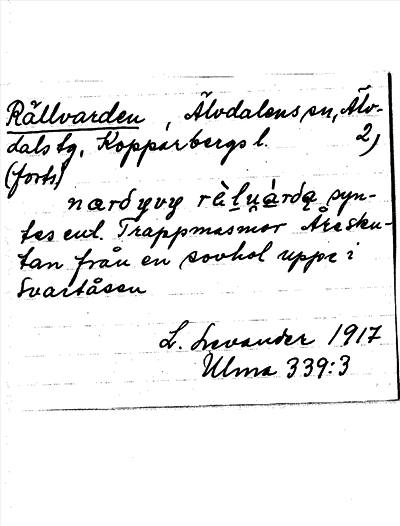 Rällvarden, Älvdalens sn, Älv-
dals tg, Kopparbergs l. 2)
(forts)
nærdyvy räluárdą syn-
tes enl. Trappmasmor Åresku-
tan från en sovhol uppe i
Svartåsen
L. Levander 1917
Ulma 339:3